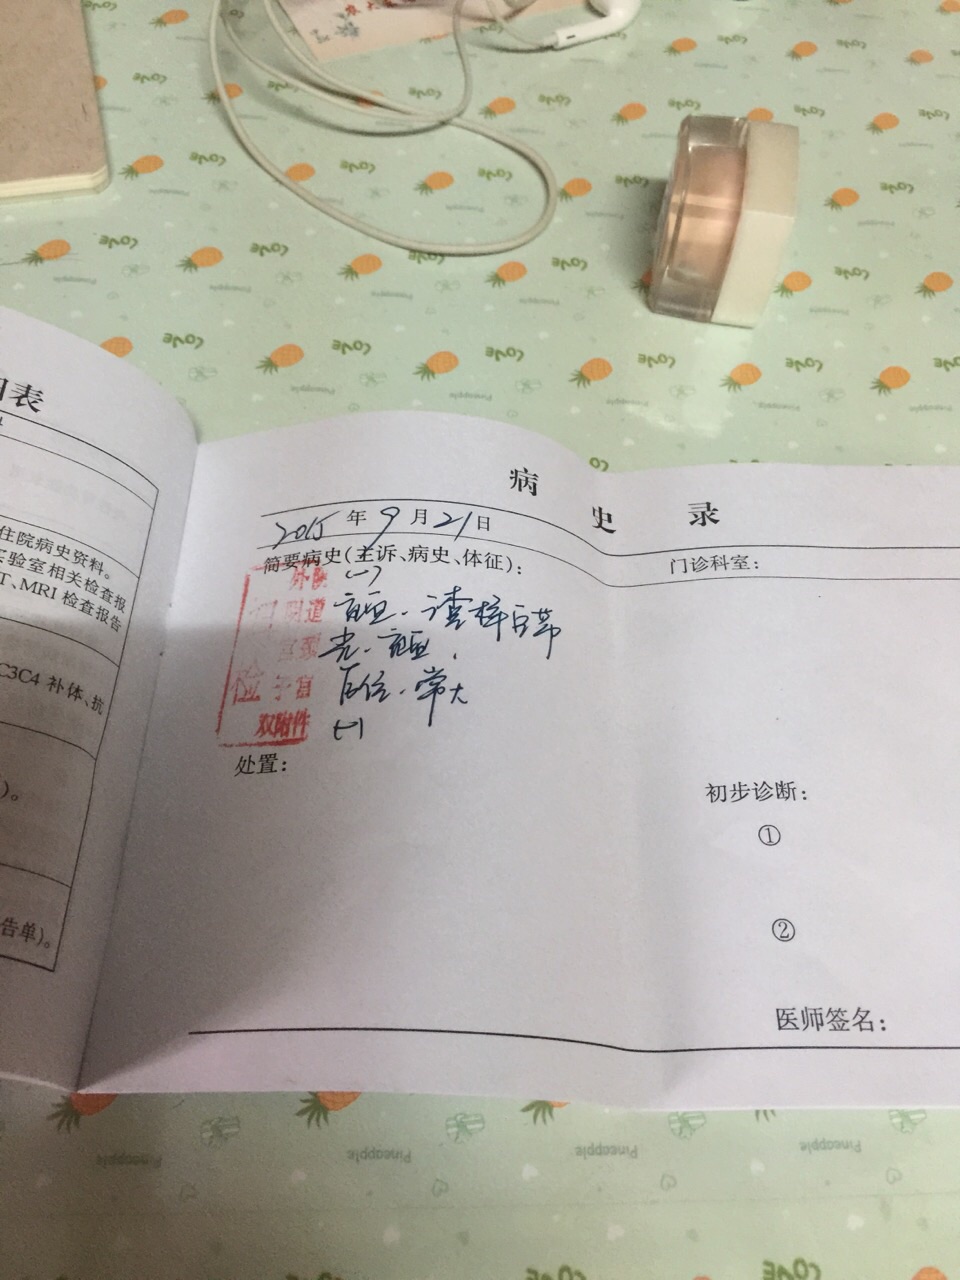 Love
Pineapple
表
住院病史资料。
实验室相关检查报
T、MRI 检查报告
C3C4 补体、抗
)。
告单)。
病史录
2015年9月21日
简要病史(主诉、病史、体征):
门诊科室:
外阴 (-)
阴道
宫颈 光
子宫 后位、常大
双附件 (-)
处置:
初步诊断:
①
②
医师签名: